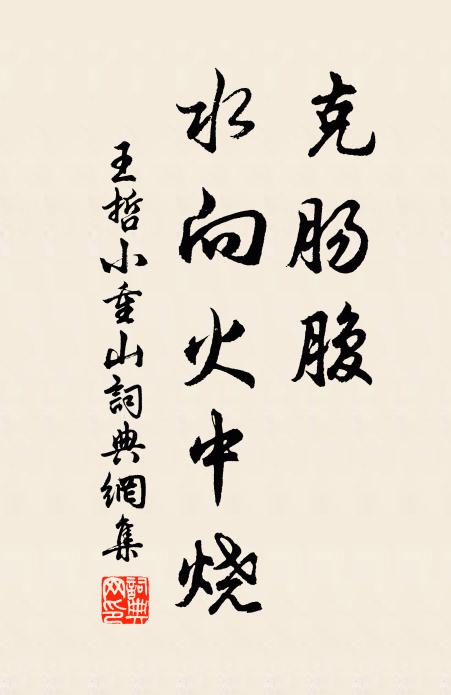 克肠腹
水向火中烧
王哲小重山詞典網集
詞典网印